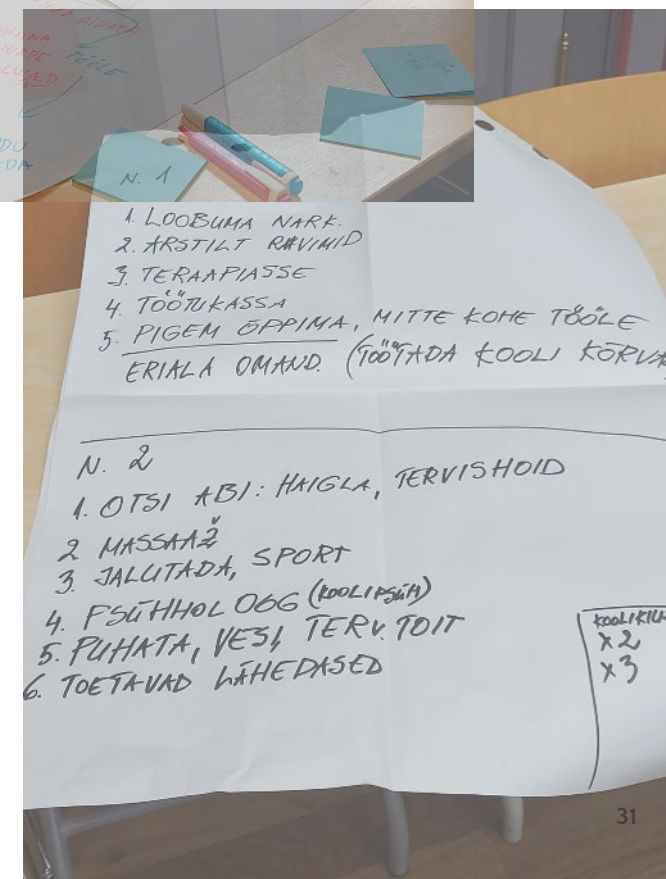 AIDATA
TÖÖLE
N. 1
1. LOOBUMA NARK.
2. ARSTILT RAVIMID
3. TERAAPIASSE
4. TÖÖTUKASSA
5. PIGEM ÕPPIMA, MITTE KOHE TÖÖLE
ERIALA OMAND. (TÖÖTADA KOOLI KÕRVA
N. 2
1. OTSI ABI: HAIGLA, TERVISHOID
2 MASSAAŽ
3. JALUTADA, SPORT
4. PSÜHHOLOOG (KOOLIPSÜH)
5. PUHATA, VESI, TERV. TOIT
6. TOETAVAD LÄHEDASED
X2
X3
31